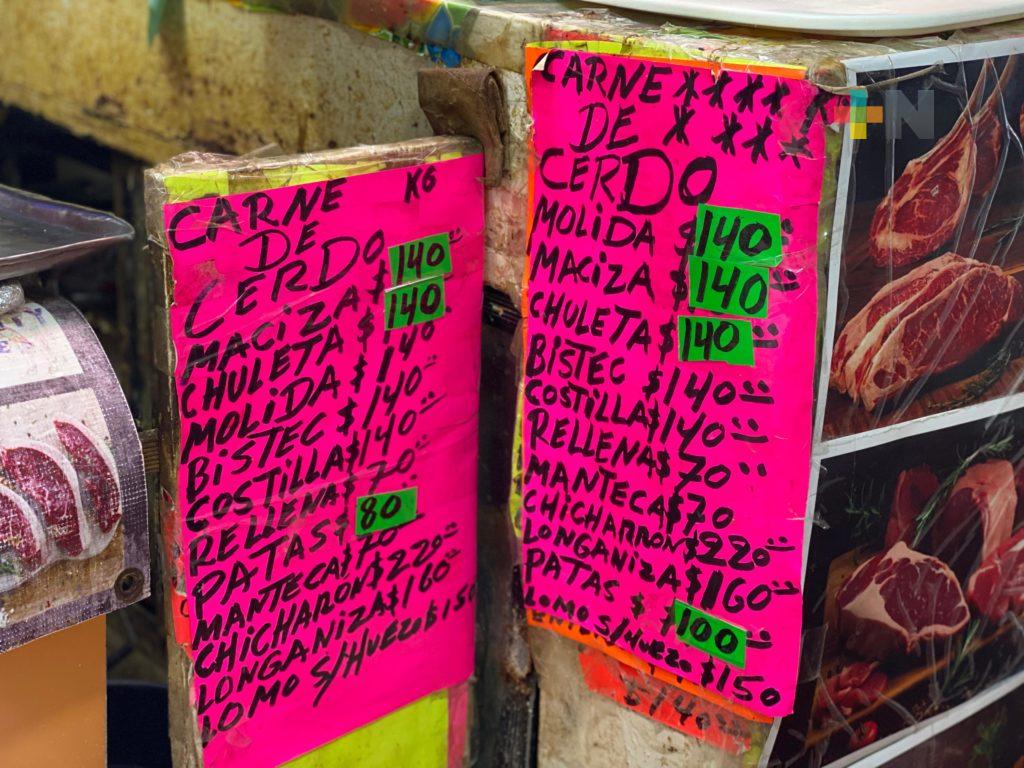 CARNE K6
DE
CERDO
MACIZA $140
CHULETA $140
MOLIDA $140
BISTEC $140
COSTILLA $140
RELLENA $70
PATAS $80
MANTECA $70
CHICHARON $220
LONGANIZA $160
LOMO S/HUEZO $150
CARNE ****
DE * **
CERDO
MOLIDA $140
MACIZA $140
CHULETA $140
BISTEC $140
COSTILLA $140
RELLENA $70
MANTECA $70
CHICHARRON $220
LONGANIZA $160
PATAS $100
LOMO S/HUEZO $150
$140
+N